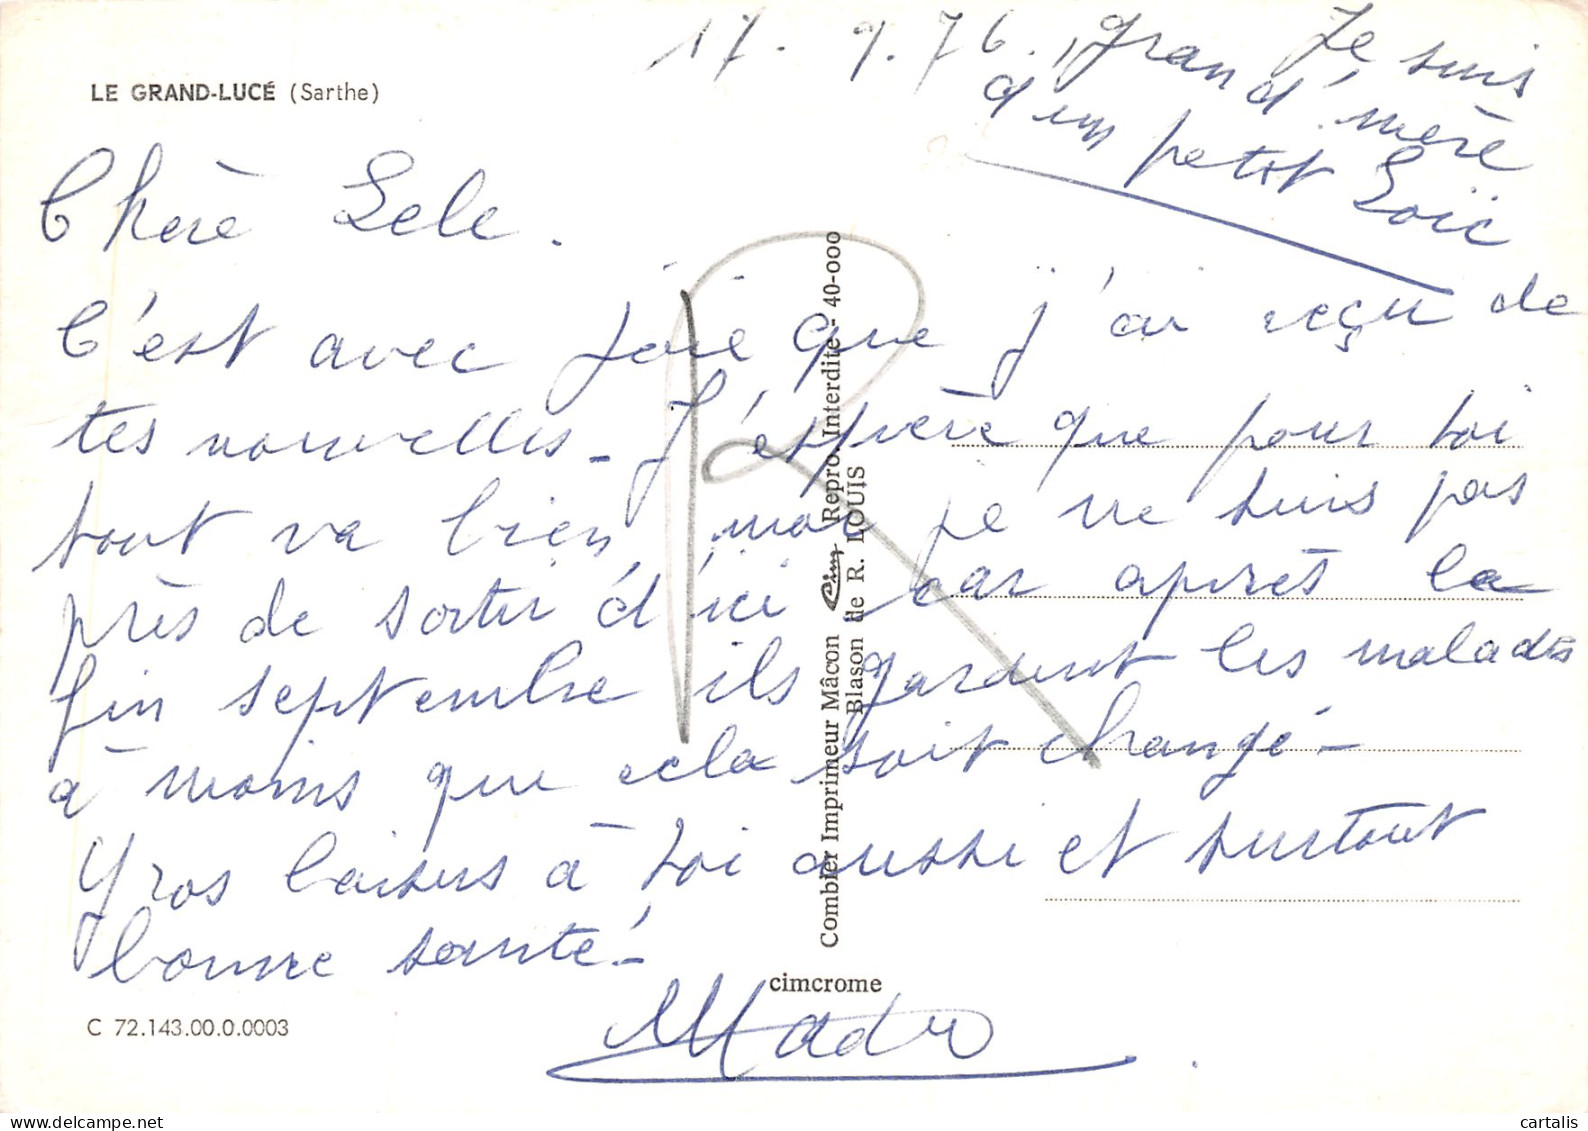 LE GRAND-LUCÉ (Sarthe)
17. 9. 76.
Je suis
grand'mère
d'un petit Loïc
Chère Lele.
C'est avec joie que j'ai reçu de
tes nouvelles - J'espère que pour toi
tout va bien moi je ne suis pas
près de sortir d'ici car après la
fin septembre ils gardent les malades
à moins que cela soit changé -
Gros baisers à toi aussi et surtout
bonne santé -
Mado
Combier Imprimeur Mâcon Cim Repro. Interdite - 40-000
Blason de R. LOUIS
cimcrome
C 72.143.00.0.0003
cartalis
www.delcampe.net